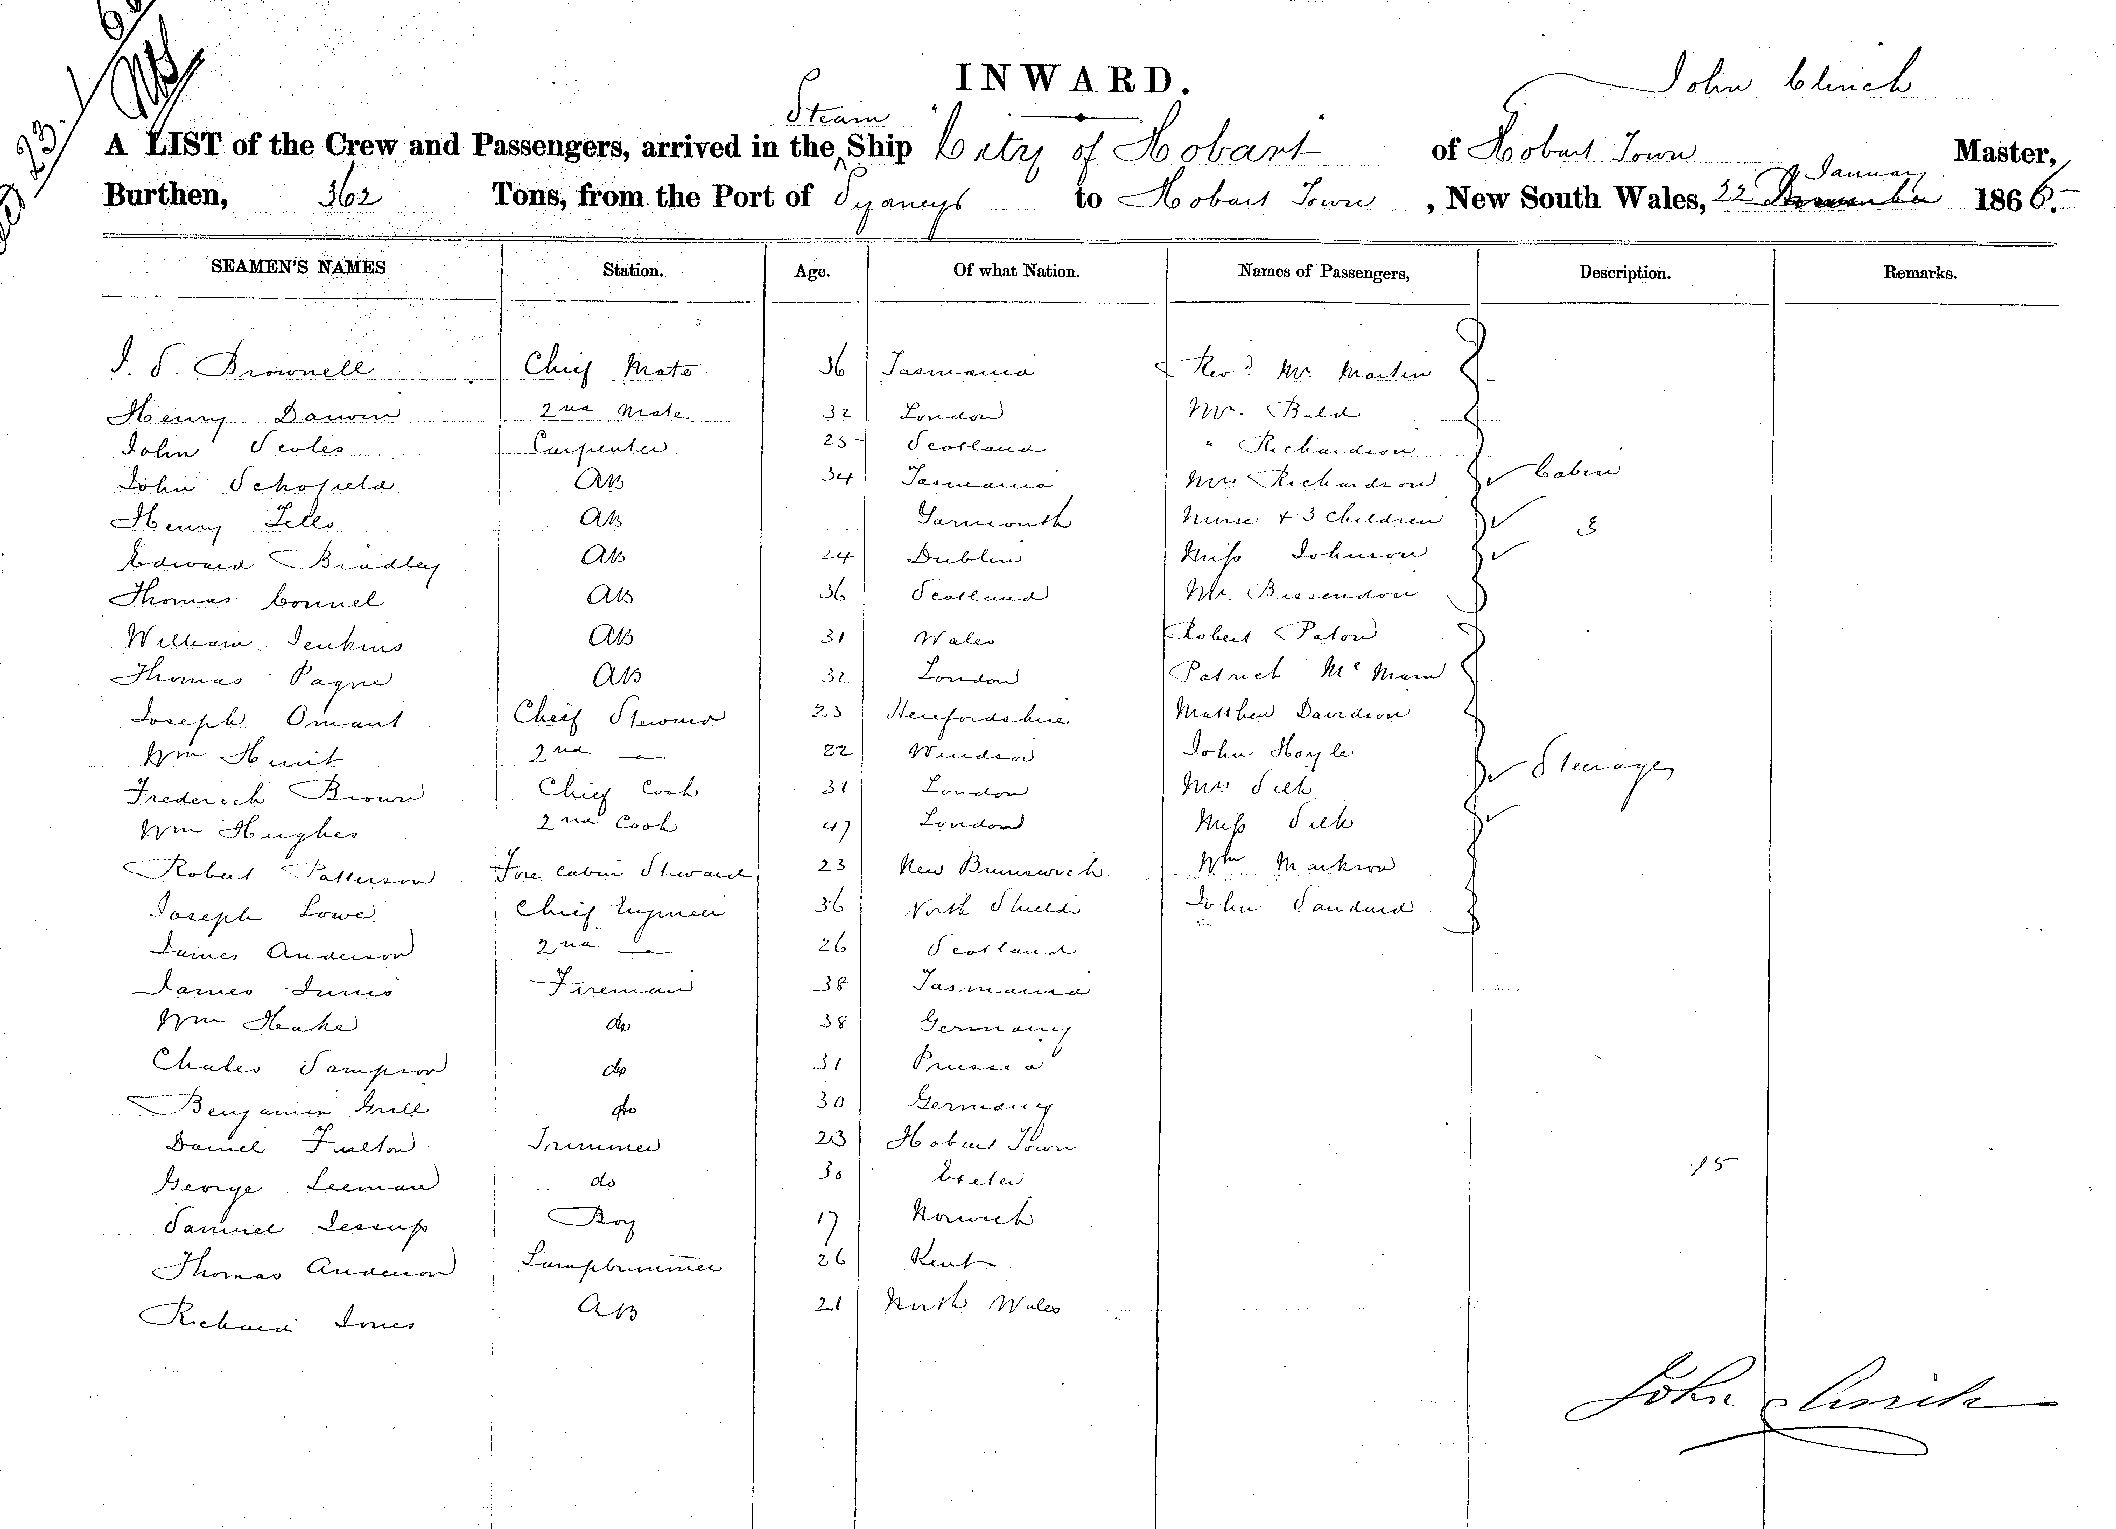 23
INWARD.
John Clinch
A LIST of the Crew and Passengers, arrived in the Steam Ship "City of Hobart of Hobart Town Master,
Burthen, 362 Tons, from the Port of Sydney to Hobart Town, New South Wales, 22 January 1866.
SEAMEN'S NAMES Station. Age. Of what Nation. Names of Passengers, Description. Remarks.
J. S. Brownell Chief Mate 36 Tasmania Revd. Mr Martin
Henry Darwin 2nd Mate 32 London Mr. Bald
John Scoles Carpenter 25 Scotland " Richardson
John Schofield AB 34 Tasmania Mrs Richardson Cabin
Henry AB Yarmouth Nurse + 3 Children 3
Edward Bradley AB 24 Dublin Miss Johnson
Thomas Connel AB 36 Scotland Mr. Bissendon
William Jenkins AB 31 Wales Robert Paton
Thomas Payne AB 32 London Patrick
Joseph Omant Chief Steward 23 Herefordshire Matthew Davidson
Wm 2nd — 22 Windsor John Hoyle
Frederick Brown Chief Cook 31 London Mrs Silk Steerage
Wm Hughes 2nd Cook 47 London Miss Silk
Robert Patterson Fore cabin Steward 23 New Brunswick Wm
Joseph Lowe Chief Engineer 36 North Shields John
James Anderson 2nd — 26 Scotland
James Innis Fireman 38 Tasmania
Wm Heake do 38 Germany
Chales Sampson do 31 Prussia
Benjamin Grill do 30 Germany
Daniel Fulton Trimmer 23 Hobart Town
George Leeman do 30 Exeter 15
Samuel Jessup Boy 17 Norwich
Thomas Anderson Lamptrimmer 26 Kent
Richard Jones AB 21 North Wales
John Clinch